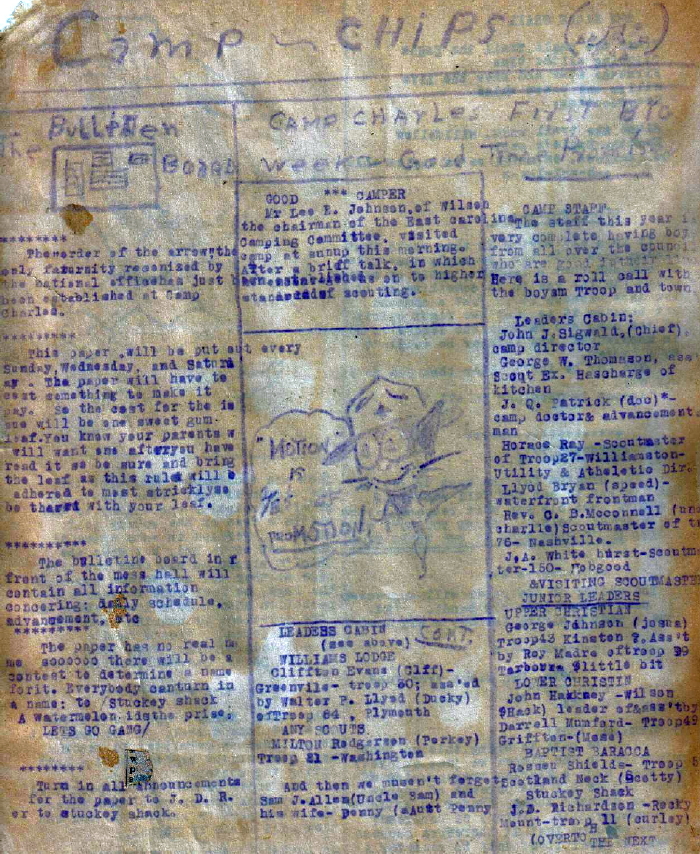 Camp - CHIPS
The Bulliten Board
CAMP CHARLES FIRST
weeks Good Time
********
The order of the arrow, the
only fraternity reconized by
the national office has just b
been established at Camp
Charles.
*********
This paper ,will be put out every
Sunday,Wednesday, and Saturd
ay . The paper will have to
cost something to make it
pay. So the cost for the is
sue will be one sweet gum-
leaf.You know your parents w
will want one after you have
read it so be sure and bring
the leaf as this rule will b
adhered to most strickly so
be thared with your leaf.
**********
The bulletine board in f
front of the mess hall will
contain all information
concering: daily schedule,
advancement, etc
*********
The paper has no real n
me soooooo there will be a
contest to determine a name
forit. Everybody canturn in
a name: to Stuckey shack
A watermelon is the prise;
LETS GO GANG/
********
Turn in all announcements
for the paper to J. D. R.
er to stuckey shack.
GOOD *** CAMPER
Mr Lee E. Johnson,of Wilson
the chairman of the East carolina
Camping Committee, visited
camp at sunup this morning.
After a brift talk, in which
on to higher
standards of scouting.
"MOTION
IS
OF
PROMOTION!
LEADESS CABIN CONT.
(see above)
WILLIAMS LODGE
Cliffton Evans (Cliff)-
Greenvile- troop 30; ass'ed
by Walter P. Llyod (Ducky)
ofTroop 84 , Plymouth
ANY SCOUTS
MILTON Rodgerson (Porkey)
Troop 21 -Washington
And then we musen't forget
Sam J.Allen(Uncle Sam) and
his wife- penny (aAutt Penny
CAMP STAFF
The staff this year i
very complete having boy
from all over the counci
Here is a roll call with
the boysm Troop and town
Leaders Cabin;
John J.Sigwald,(Chief)
camp director
George W. Thomason, ass
Scout Ex. Hascharge of
kitchen
J. Q. Patrick (doc)*-
camp doctor& advancement
man
Horace Ray -Scoutmaster
of Troop27-Williamston-
Utility & Atheletic Dir.
Llyod Bryan (speed)-
waterfront frontman
Rev. C. B.Mcconnell (unc
charlie)Scoutmaster of t
76- Nashville.
J.A. White hurst-Scoutm
ter-150- Hobgood
&VISITING SCOUTMAST
JUNIOR LEADERS
UPPER CHRISTIAN
George Johnson (josua)
Troop43 Kinston ?.Ass't
by Roy Madre oftroop 99
Tarboura $little bit
LOWER CHRISTIN
John Hakkney -Wilson
$Hack) leader of&ass'tby
Darrell Mumford- Troop49
Griffton-(Mose)
BAPTIST BARACCA
Rossen Shields- Troop 5
Scotland Neck (Scotty)
Stuckey Shack
J.D. Richardson -Rocky
Mount-troop 11 (curley)
(OVERTO THE NEXT